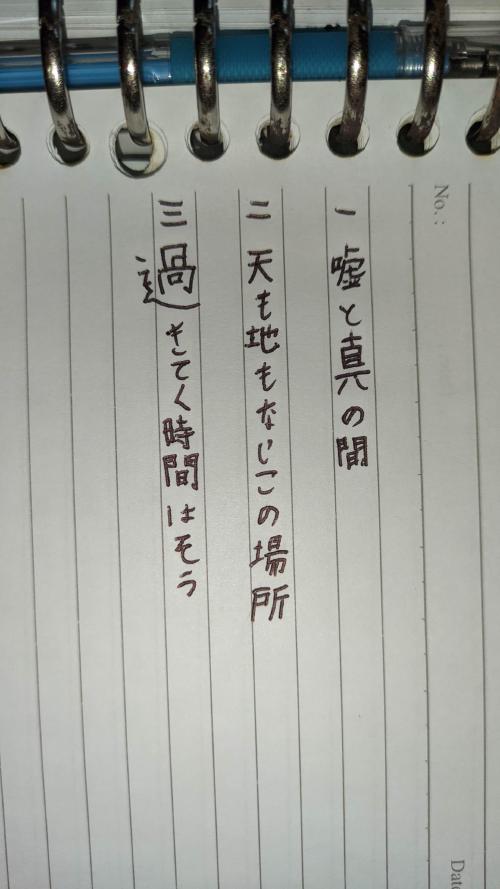 No.:
一 嘘と真の間
二 天も地もないこの場所
三 過きてく時間はそう
Date